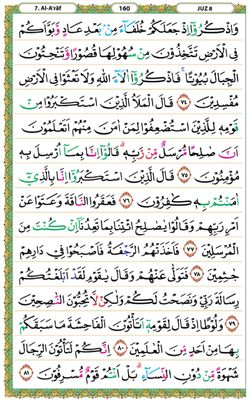 7. Al-A'râf 160 JUZ 8
وَاذْكُرُوْٓا اِذْ جَعَلَكُمْ خُلَفَاۤءَ مِنْۢ بَعْدِ عَادٍ وَّبَوَّاَكُمْ
فِى الْاَرْضِ تَتَّخِذُوْنَ مِنْ سُهُوْلِهَا قُصُوْرًا وَّتَنْحِتُوْنَ
الْجِبَالَ بُيُوْتًا ۚ فَاذْكُرُوْٓا اٰلَاۤءَ اللّٰهِ وَلَا تَعْثَوْا فِى الْاَرْضِ
مُفْسِدِيْنَ ﴿٧٤﴾ قَالَ الْمَلَاُ الَّذِيْنَ اسْتَكْبَرُوْا مِنْ
قَوْمِهٖ لِلَّذِيْنَ اسْتُضْعِفُوْا لِمَنْ اٰمَنَ مِنْهُمْ اَتَعْلَمُوْنَ
اَنَّ صٰلِحًا مُّرْسَلٌ مِّنْ رَّبِّهٖ ۗ قَالُوْٓا اِنَّا بِمَآ اُرْسِلَ بِهٖ
مُؤْمِنُوْنَ ﴿٧٥﴾ قَالَ الَّذِيْنَ اسْتَكْبَرُوْٓا اِنَّا بِالَّذِيْٓ
اٰمَنْتُمْ بِهٖ كٰفِرُوْنَ ﴿٧٦﴾ فَعَقَرُوا النَّاقَةَ وَعَتَوْا عَنْ
اَمْرِ رَبِّهِمْ وَقَالُوْا يٰصٰلِحُ ائْتِنَا بِمَا تَعِدُنَآ اِنْ كُنْتَ مِنَ
الْمُرْسَلِيْنَ ﴿٧٧﴾ فَاَخَذَتْهُمُ الرَّجْفَةُ فَاَصْبَحُوْا فِيْ دَارِهِمْ
جٰثِمِيْنَ ﴿٧٨﴾ فَتَوَلّٰى عَنْهُمْ وَقَالَ يٰقَوْمِ لَقَدْ اَبْلَغْتُكُمْ
رِسَالَةَ رَبِّيْ وَنَصَحْتُ لَكُمْ وَلٰكِنْ لَّا تُحِبُّوْنَ النّٰصِحِيْنَ
﴿٧٩﴾ وَلُوْطًا اِذْ قَالَ لِقَوْمِهٖٓ اَتَأْتُوْنَ الْفَاحِشَةَ مَا سَبَقَكُمْ
بِهَا مِنْ اَحَدٍ مِّنَ الْعٰلَمِيْنَ ﴿٨٠﴾ اِنَّكُمْ لَتَأْتُوْنَ الرِّجَالَ
شَهْوَةً مِّنْ دُوْنِ النِّسَاۤءِ ۗ بَلْ اَنْتُمْ قَوْمٌ مُّسْرِفُوْنَ ﴿٨١﴾